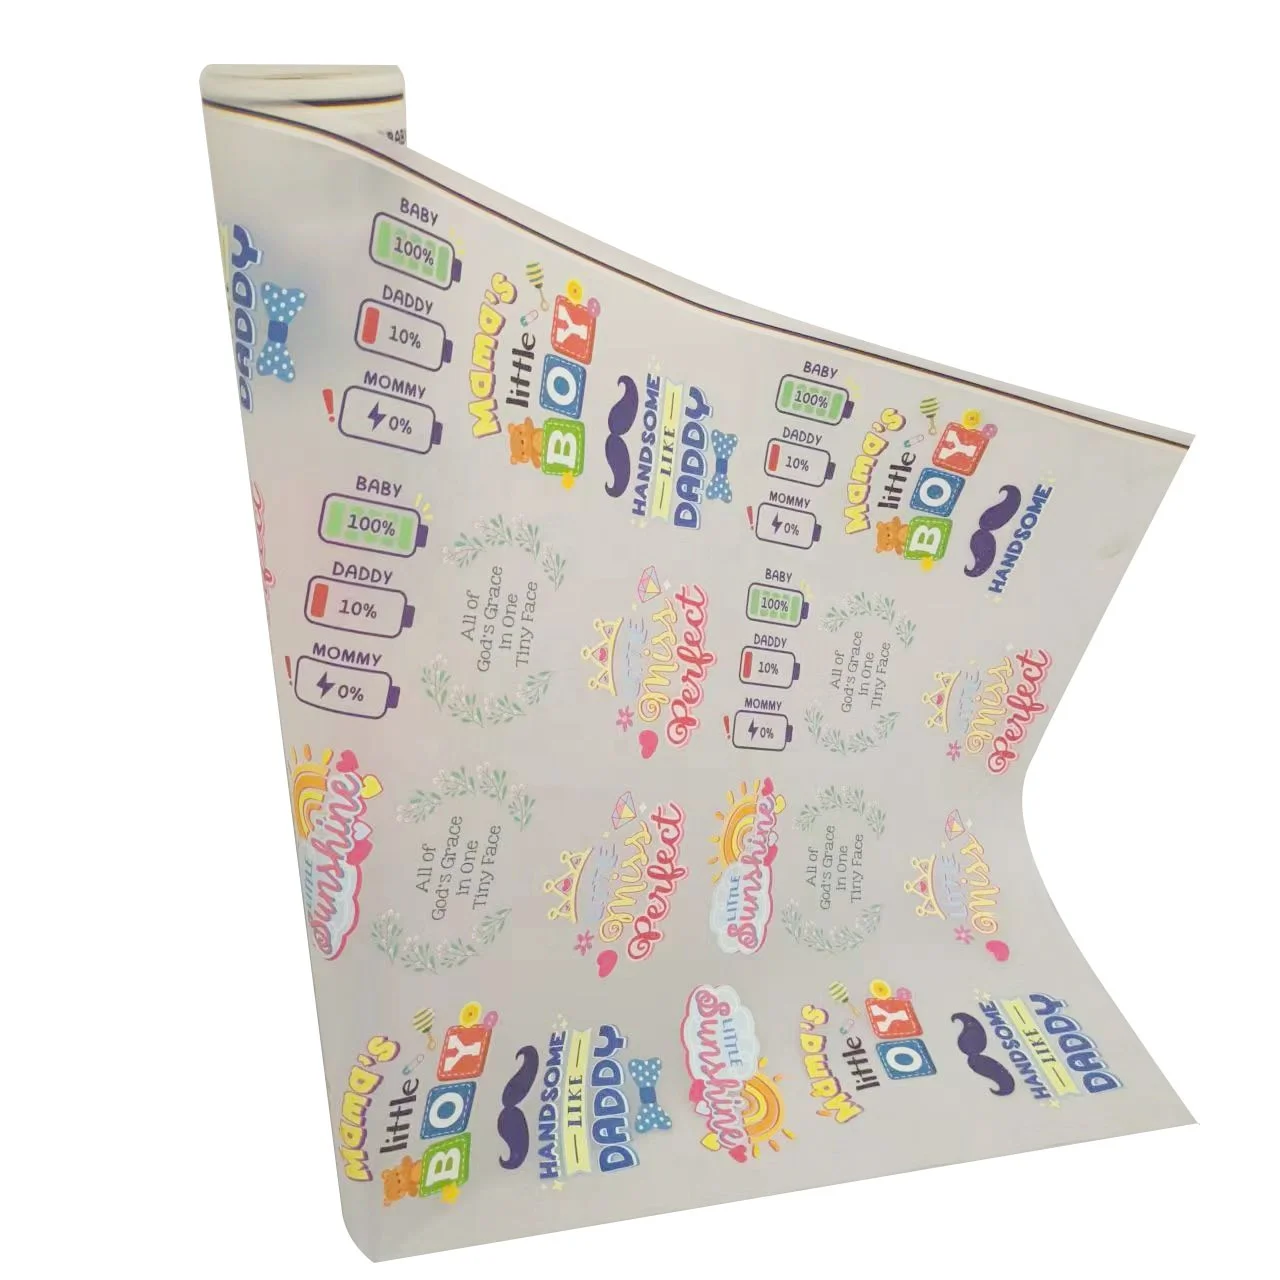 BABY
100%
DADDY
10%
MOMMY
0%
DADDY
Mama's
little
BOY
HANDSOME
LIKE
DADDY
BABY
100%
DADDY
10%
MOMMY
0%
Mama's
little
BOY
HANDSOME
BABY
100%
DADDY
10%
MOMMY
0%
All of
God's Grace
in One
Tiny Face
LITTLE
Miss
Perfect
BABY
100%
DADDY
10%
MOMMY
0%
All of
God's Grace
in One
Tiny Face
LITTLE
Miss
Perfect
LITTLE
Sunshine
All of
God's Grace
in One
Tiny Face
LITTLE
Miss
Perfect
LITTLE
Sunshine
All of
God's Grace
in One
Tiny Face
LITTLE
Miss
Mama's
little
BOY
HANDSOME
LIKE
DADDY
LITTLE
Sunshine
Mama's
little
OY
HANDSOME
LIKE
DADDY